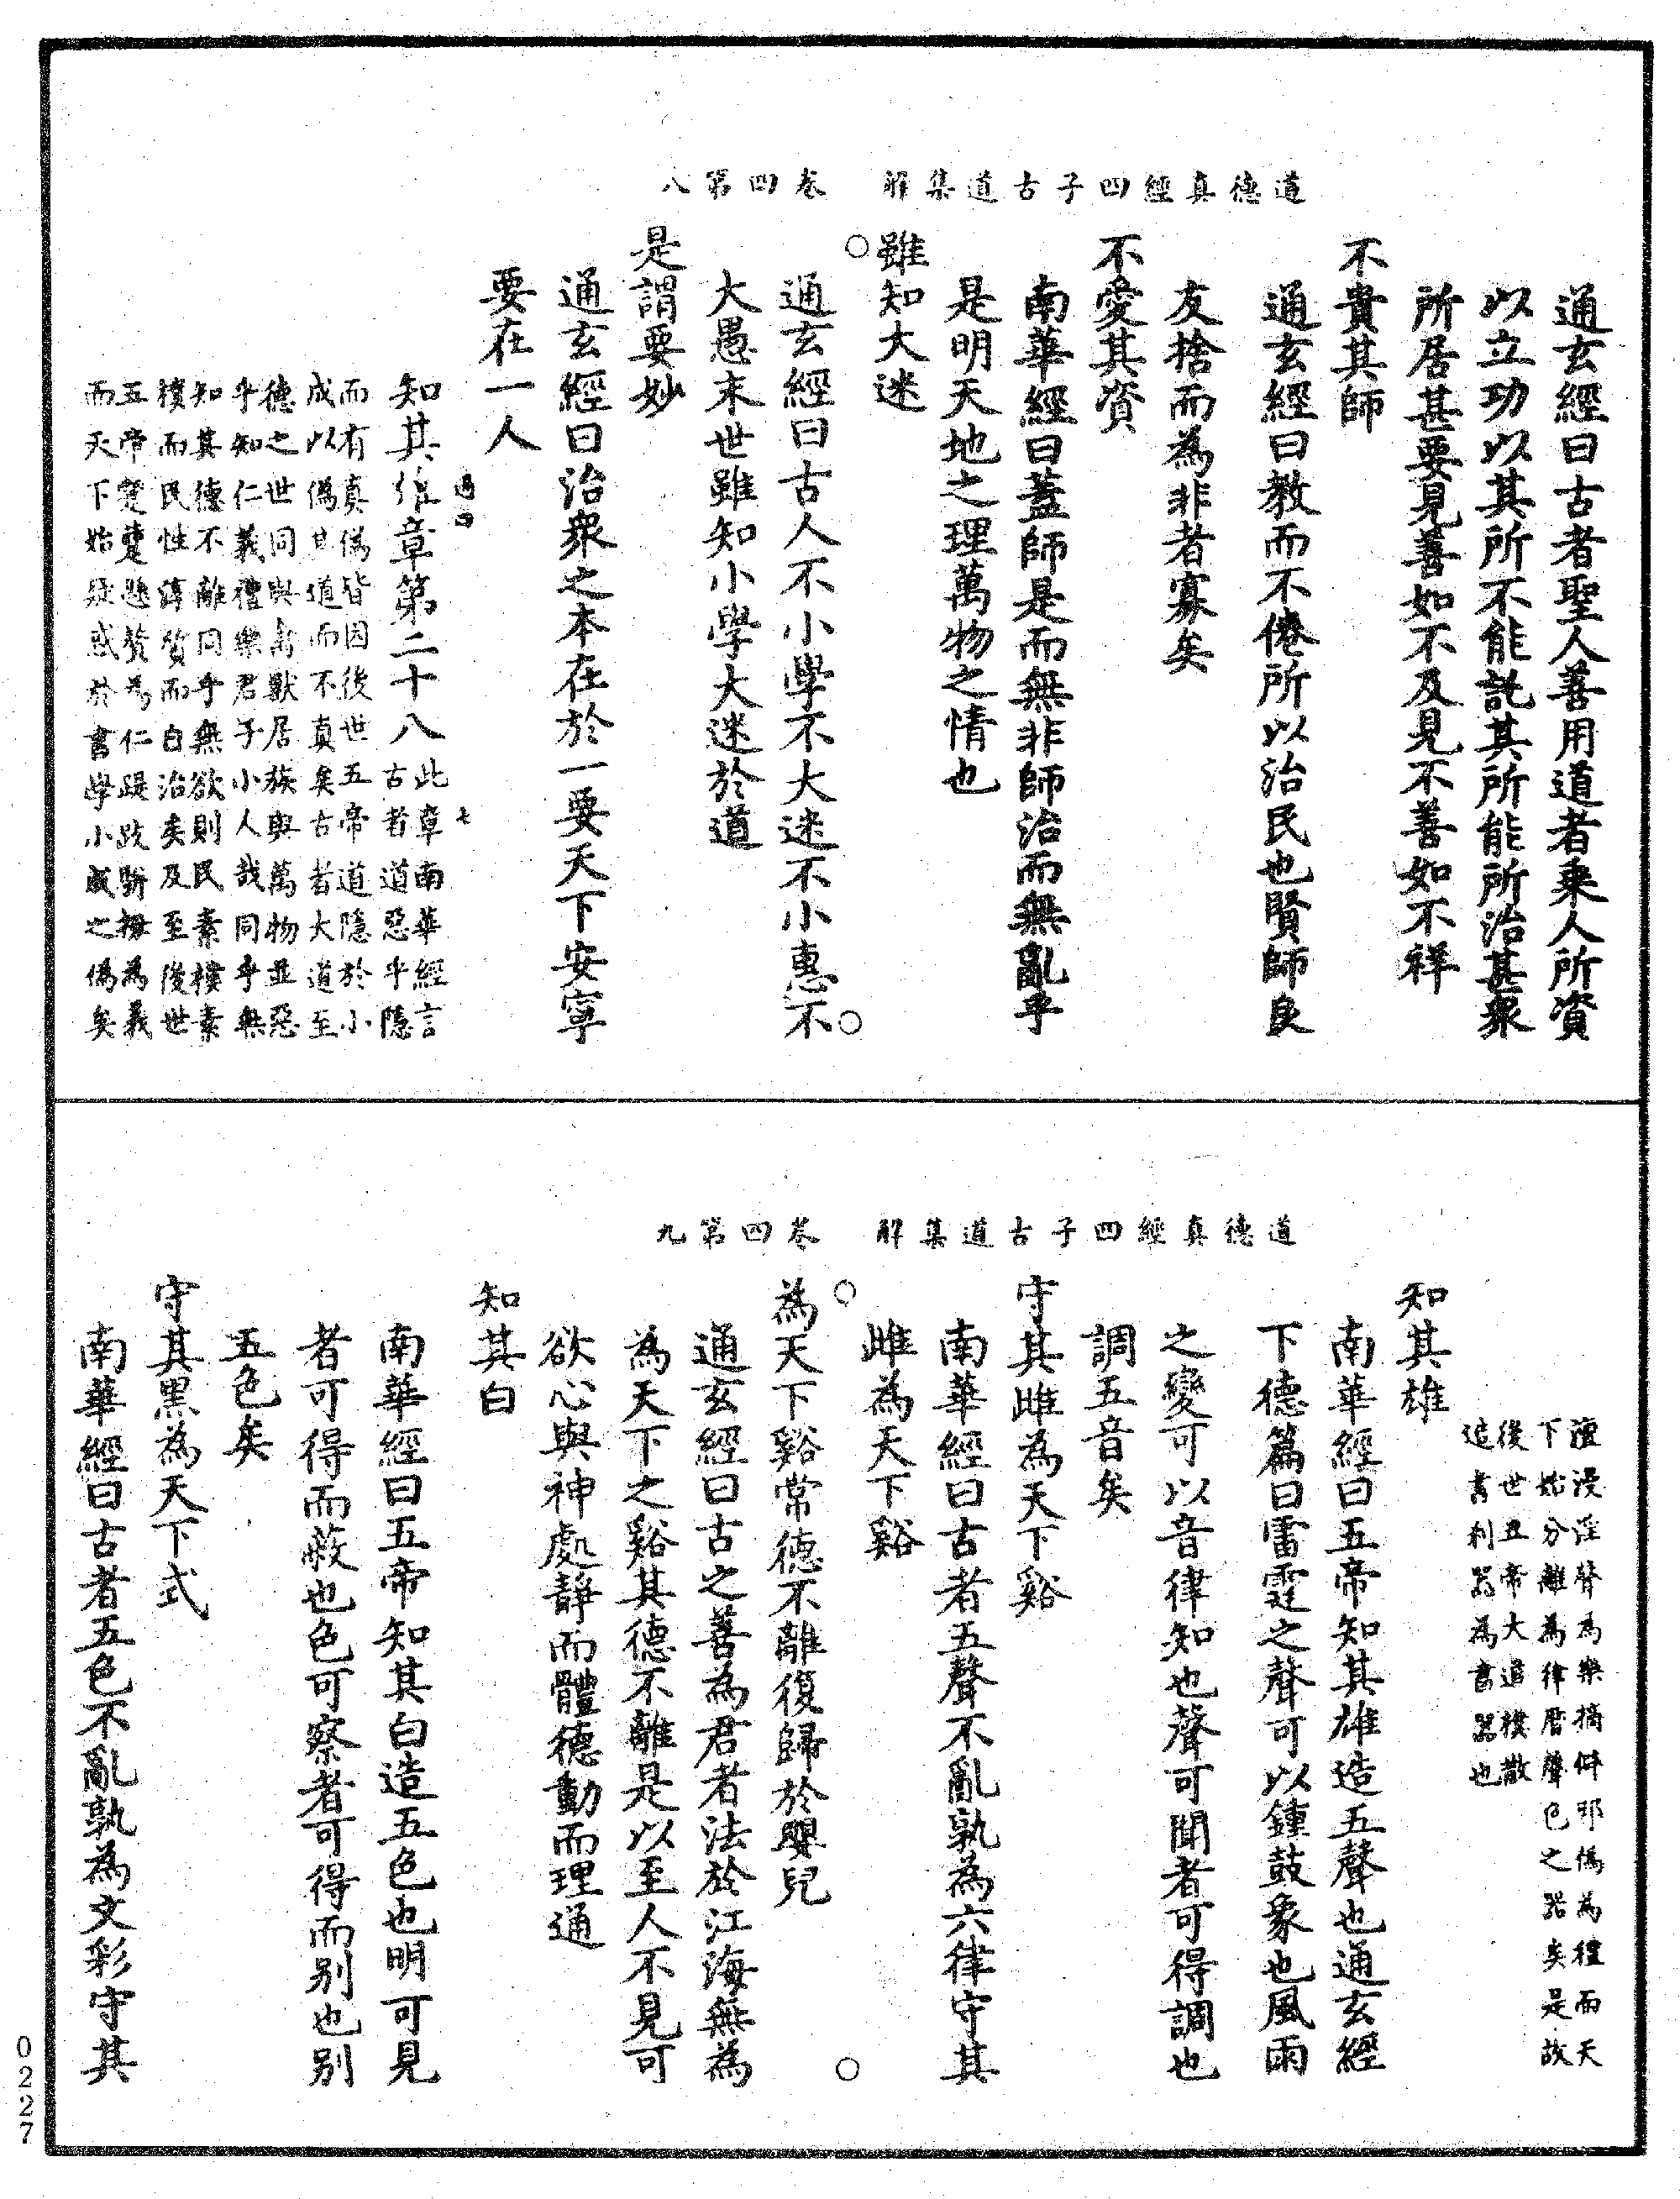 道德真經四子古道集解　卷四第八
通玄經曰古者聖人善用道者乘人所資
以立功以其所不能託其所能所治甚衆
所居甚要見善如不及見不善如不祥
不貴其師
通玄經曰教而不倦所以治民也賢師良
友捨而為非者寡矣
不愛其資
南華經曰蓋師是而無非師治而無亂乎
是明天地之理萬物之情也
雖知大迷
通玄經曰古人不小學不大迷不小惠不
大愚末世雖知小學大迷於道
是謂要妙
通玄經曰治衆之本在於一要天下安寧
要在一人
過四　七
知其雄章第二十八
此章南華經言
古者道惡乎隱
而有真偽皆因後世五帝道隱於小
成以偽其道而不真矣古者大道至
德之世同與禽獸居族與萬物並惡
乎知仁義禮樂君子小人哉同乎無
知其德不離同乎無欲則民素樸素
樸而民性薄質而自治矣及至後世
五帝躄躠懸贅為仁踶跂駢拇為義
而天下始疑惑於書學小成之偽矣
道德真經四子古道集解　卷四第九
澶漫淫聲為樂摘僻邪偽為禮而天
下始分離為律曆聲色之器矣是故
後世五帝大道樸散
造書利器為書器也
知其雄
南華經曰五帝知其雄造五聲也通玄經
下德篇曰雷霆之聲可以鍾鼓象也風雨
之變可以音律知也聲可聞者可得調也
調五音矣
守其雌為天下谿
南華經曰古者五聲不亂孰為六律守其
雌為天下谿
為天下谿常德不離復歸於嬰兒
通玄經曰古之善為君者法於江海無為
為天下之谿其德不離是以至人不見可
欲心與神處靜而體德動而理通
知其白
南華經曰五帝知其白造五色也明可見
者可得而蔽也色可察者可得而別也別
五色矣
守其黑為天下式
南華經曰古者五色不亂孰為文彩守其
0227